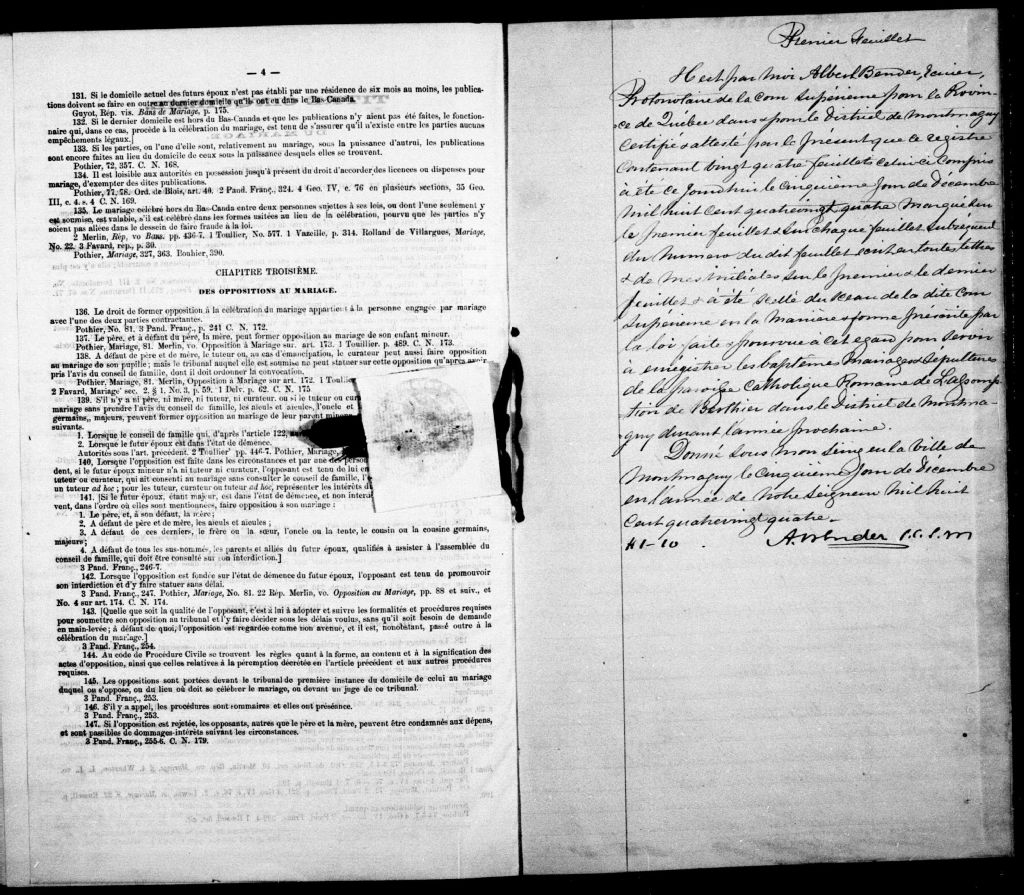 — 4 —
131. Si le domicile actuel des futurs époux n'est pas établi par une résidence de six mois au moins, les publica-
tions doivent se faire en outre au dernier domicile qu'ils ont eu dans le Bas-Canada.
Guyot, Rép. vis. Bans de Mariage, p. 175.
132. Si le dernier domicile est hors du Bas-Canada et que les publications n'y aient pas été faites, le fonction-
naire qui, dans ce cas, procède à la célébration du mariage, est tenu de s'assurer qu'il n'existe entre les parties aucuns
empêchements légaux.]
133. Si les parties, ou l'une d'elle sont, relativement au mariage, sous la puissance d'autrui, les publications
sont encore faites au lieu du domicile de ceux sous la puissance desquels elles se trouvent.
Pothier, 72, 357. C. N. 168.
134. Il est loisible aux autorités en possession jusqu'à présent du droit d'accorder les licences ou dispenses pour
mariage, d'exempter des dites publications.
Pothier, 77, 78. Ord. de Blois, art. 40. 2 Pand. Franç., 324. 4 Geo. IV, c. 76 en plusieurs sections, 35 Geo.
III, c. 4, s. 4 C. N. 169.
135. Le mariage célébré hors du Bas-Canda entre deux personnes sujettes à ses lois, ou dont l'une seulement y
est soumise, est valable, s'il est célébré dans les formes usitées au lieu de la célébration, pourvu que les parties n'y
soient pas allées dans le dessein de faire fraude à la loi.
2 Merlin, Rép, vo Bans. pp. 436-7. 1 Toullier, No. 577. 1 Vazeille, p. 314. Rolland de Villargues, Mariage,
No. 22. 3 Favard, rep., p. 30.
Pothier, Mariage, 327, 363. Bouhier, 390.
CHAPITRE TROISIÈME.
DES OPPOSITIONS AU MARIAGE.
136. Le droit de former opposition à la célébration du mariage appartient à la personne engagée par mariage
avec l'une des deux parties contractantes.
Pothier, No. 81. 3 Pand. Franç., p. 241 C. N. 172.
137. Le père, et à défaut du père, la mère, peut former opposition au mariage de son enfant mineur.
Pothier, Mariage, 81. Merlin, vo. Opposition à Mariage sur. art. 173. 1 Toullier. p. 489. C. N. 173.
138. A défaut de père et de mère, le tuteur ou, au cas d'émancipation, le curateur peut aussi faire opposition
au mariage de son pupille; mais le tribunal auquel elle est soumise ne peut statuer sur cette opposition qu'après avoir
pris l'avis du conseil de famille, dont il doit ordonner la convocation.
Pothier, Mariage, 81. Merlin, Opposition à Mariage sur art. 172. 1 Toullier
2 Favard, Mariage' sec. 2. § 1, No. 3, p. 59. 1 Delv. p. 62. C. N. 175
139. S'il n'y a ni père, ni mère, ni tuteur, ni curateur, ou si le tuteur ou cur
mariage sans prendre l'avis du conseil de famille, les aïeuls et aïeules, l'oncle et
germains, majeurs, peuvent former opposition au mariage de leur parent mineur
suivants.
1. Lorsque le conseil de famille qui, d'après l'article 122,
2. Lorsque le futur époux est dans l'état de démence.
Autorités sous l'art. précédent. 2 Toullier' pp. 446-7. Pothier, Mariage,
140. Lorsque l'opposition est faite dans les circonstances et par une des person
dent, si le futur époux mineur n'a ni tuteur ni curateur, l'opposant est tenu de lui en
tuteur ou curateur, qui ait consenti au mariage sans consulter le conseil de famille, l'
un tuteur ad hoc; pour les tuteur, curateur ou tuteur ad hoc, représenter les intérêts d
141. [Si le futur époux, étant majeur, est dans l'état de démence, et non inter
vent, dans l'ordre où elles sont mentionnées, faire opposition à son mariage :
1. Le père, et, à son défaut, la mère;
2. A défaut de père et de mère, les aïeuls et aïeules;
3. A défaut de ces derniers, le frère ou la sœur, l'oncle ou la tente, le cousin ou la cousine germains,
majeurs;
4. A défaut de tous les sus-nommés, les parents et alliés du futur époux, qualifiés à assister à l'assemblée du
conseil de famille, qui doit être consulté sur son interdiction.]
3 Pand. Franç., 246-7.
142. Lorsque l'opposition est fondée sur l'état de démence du futur époux, l'opposant est tenu de promouvoir
son interdiction et d'y faire statuer sans délai.
3 Pand. Franç., 247. Pothier, Mariage, No. 81. 22 Rép. Merlin, vo. Opposition au Mariage, pp. 88 et suiv., et
No. 4 sur art. 174. C. N. 174.
143. [Quelle que soit la qualité de l'opposant, c'est à lui à adopter et suivre les formalités et procédures requises
pour soumettre son opposition au tribunal et l'y faire décider sous les délais voulus, sans qu'il soit besoin de demande
en main-levée; à défaut de quoi, l'opposition est regardée comme non avenue, et il est, nonobstant, passé outre à la
célébration du mariage.]
3 Pand. Franç., 254.
144. Au code de Procédure Civile se trouvent les règles quant à la forme, au contenu et à la signification des
actes d'opposition, ainsi que celles relatives à la péremption décrétée en l'article précédent et aux autres procédures
requises.
145. Les oppositions sont portées devant le tribunal de première instance du domicile de celui au mariage
duquel on s'oppose, ou du lieu où doit se célébrer le mariage, ou devant un juge de ce tribunal.
3 Pand. Franç., 253.
146. S'il y a appel, les procédures sont sommaires et elles ont préséance.
3 Pand. Franç., 253.
147. Si l'opposition est rejetée, les opposants, autres que le père et la mère, peuvent être condamnés aux dépens,
et sont passibles de dommages-intérêts suivant les circonstances.
3 Pand. Franç., 255-6. C. N. 179.
Premier Feuillet
Il est par Moi Albert Bender, Ecuier,
Protonotaire de la Cour Supérieure pour la Provin-
ce de Québec dans & pour le District de Montmagny
Certifié & attesté par le Présent que ce registre
Contenant vingt quatre feuillets celui ci Compris
à été ce Jourd'hui le Cinquième Jour de Décembre
Mil huit Cent quatrevingt quatre Marqué sur
le premier feuillet & sur chaque feuillet subséquent
du Numéro du dit feuillet écrit en toutes lettres
& de Mes initiales sur le premier & le dernier
feuillet & à été scellé du Sceau de la dite Cour
Supérieure en la Manière & forme prescrite par
la loi faite & pourvue à cet égard pour servir
à enregistrer les baptêmes Mariages & Sépultures
de la paroisse Catholique Romaine de L'Assomp-
tion de Berthier dans le District de Montma-
gny durant l'année prochaine.
Donné sous Mon Seing en la Ville de
Montmagny le Cinquième Jour de Décembre
en l'année de Notre Seigneur Mil huit
Cent quatrevingt quatre.
#1-10 ABender P.C.S.M